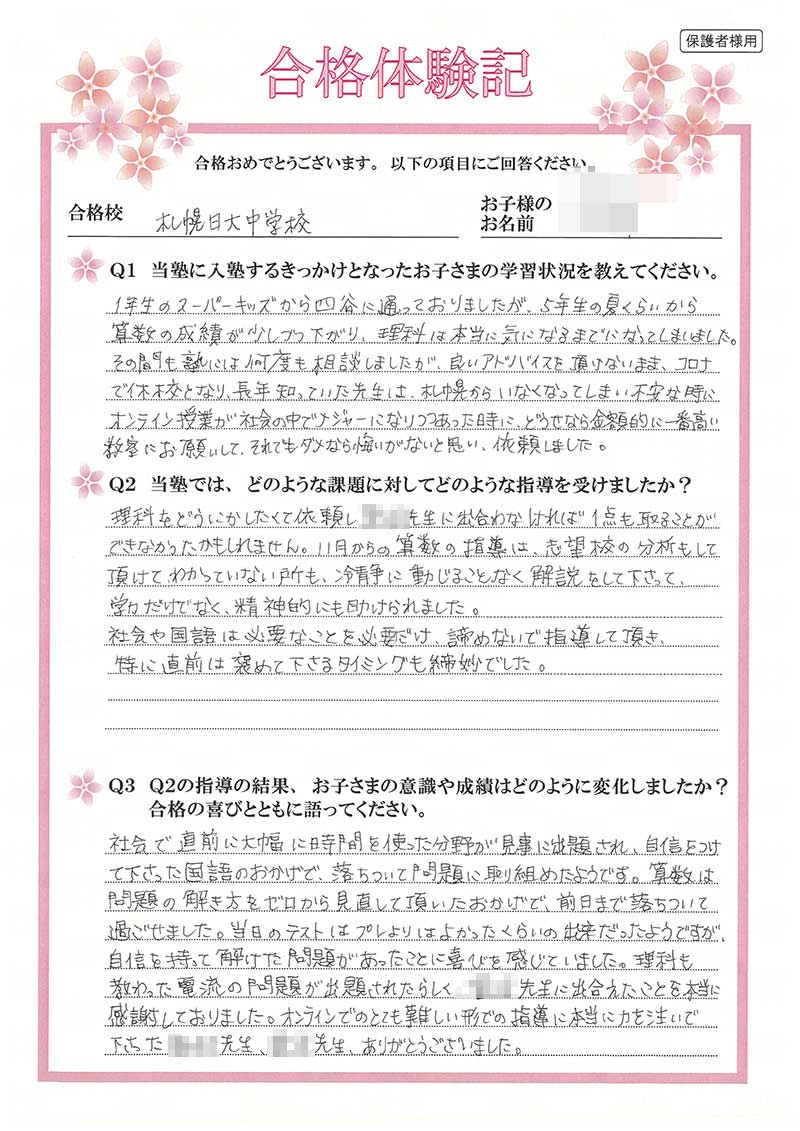 保護者様用
合格体験記
合格おめでとうございます。以下の項目にご回答ください。
合格校 札幌日大中学校
お子様の
お名前
Q1 当塾に入塾するきっかけとなったお子さまの学習状況を教えてください。
1年生のスーパーキッズから四谷に通っておりましたが、5年生の夏くらいから
算数の成績が少しづつ下がり、理科は本当に気になるまでになってしまいました。
その間も塾には何度も相談しましたが、良いアドバイスを頂けないまま、コロナ
で休校となり、長年知っていた先生は、札幌からいなくなってしまい不安な時に
オンライン授業が社会の中でメジャーになりつつあった時に、どうせなら金額的に一番高い
教室にお願いして、それでもダメなら悔いがないと思い、依頼しました。
Q2 当塾では、どのような課題に対してどのような指導を受けましたか？
理科をどうにかしたくて依頼し 先生に出合わなければ1点も取ることが
できなかったかもしれません。11月からの算数の指導は、志望校の分析もして
頂けて、わかっていない所も、冷静に動じることなく解説をして下さって、
学力だけでなく、精神的にも助けられました。
社会や国語は必要なことを必要だけ、諦めないで指導して頂き、
特に直前は褒めて下さるタイミングも絶妙でした。
Q3 Q2の指導の結果、お子さまの意識や成績はどのように変化しましたか？
合格の喜びとともに語ってください。
社会で直前に大幅に時間を使った分野が見事に出題され、自信をつけ
て下さった国語のおかげで、落ちついて問題に取り組めたようです。算数は
問題の解き方をゼロから見直して頂いたおかげで、前日まで落ちついて
過ごせました。当日のテストはプレよりはよかったくらいの出来だったようですが、
自信を持って解けた問題があったことに喜びを感じていました。理科も
教わった電流の問題が出題されたらしく 先生に出合えたことを本当に
感謝しておりました。オンラインでのとても難しい形での指導に本当に力を注いで
下さった 先生、 先生、ありがとうございました。